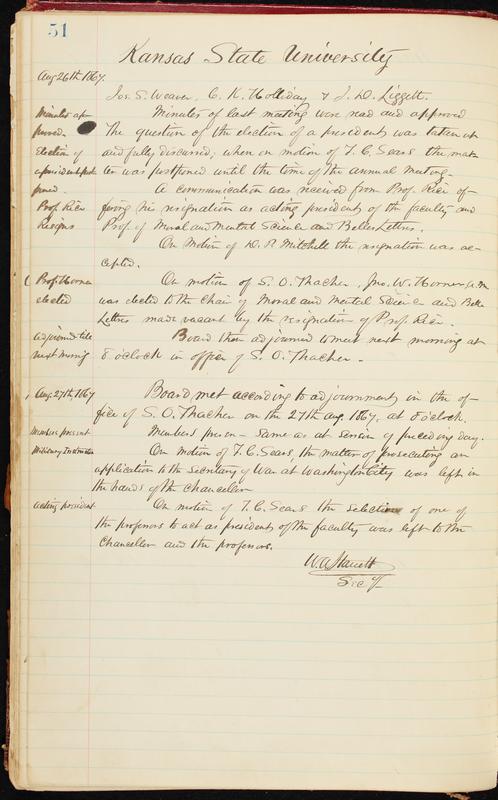 51
Kansas State University
Aug 26th 1867.
Jos. S. Weaver, C. K. Holliday & J. D. Liggett.
Minutes ap-
proved.
Minutes of last meeting were read and approved
The question of the election of a president was taken up
Election of
a president post
poned.
and fully discussed, when on motion of T. C. Sears the mat-
ter was postponed until the time of the annual meeting.
A communication was received from Prof. Rice of-
Prof. Rice
Resigns
fering his resignation as acting president of the faculty and
Prof. of Moral and Mental Science and Belles Lettres.
On Motion of D. P. Mitchell the resignation was ac-
cepted.
Prof. Horner
elected
On motion of S. O. Thacher, Jno. W. Horner, A.M.
was elected to the Chair of Moral and Mental Science and Belle
Lettres made vacant by the resignation of Prof. Rice.
adjourned till
next morning
Board then adjourned to meet next morning at
8 o'clock in office of S. O. Thacher.
Aug. 27th, 1867
Board met according to adjournment in the of-
fice of S. O. Thacher on the 27th Aug. 1867, at 8 o'clock.
Members present
Members presen - same as at session of preceding day.
Military Instruction
On Motion of T. C. Sears, the matter of prosecuting an
application to the Secretary of War at Washington City was left in
the hands of the Chancellor
acting president
On motion of T. C. Sears the selection of one of
the professors to act as president of the faculty was left to the
Chancellor and the professors.
W. A. Starrett
Sec'y